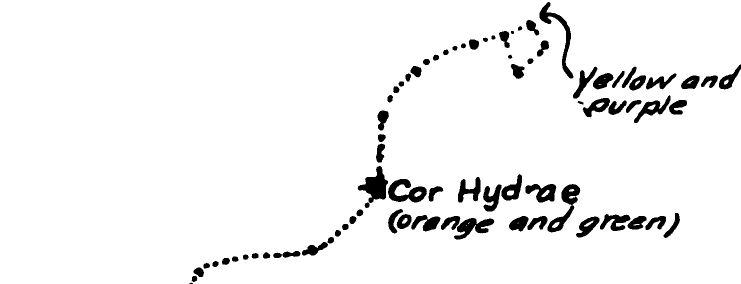 yellow and
purple
Cor Hydrae
(orange and green)